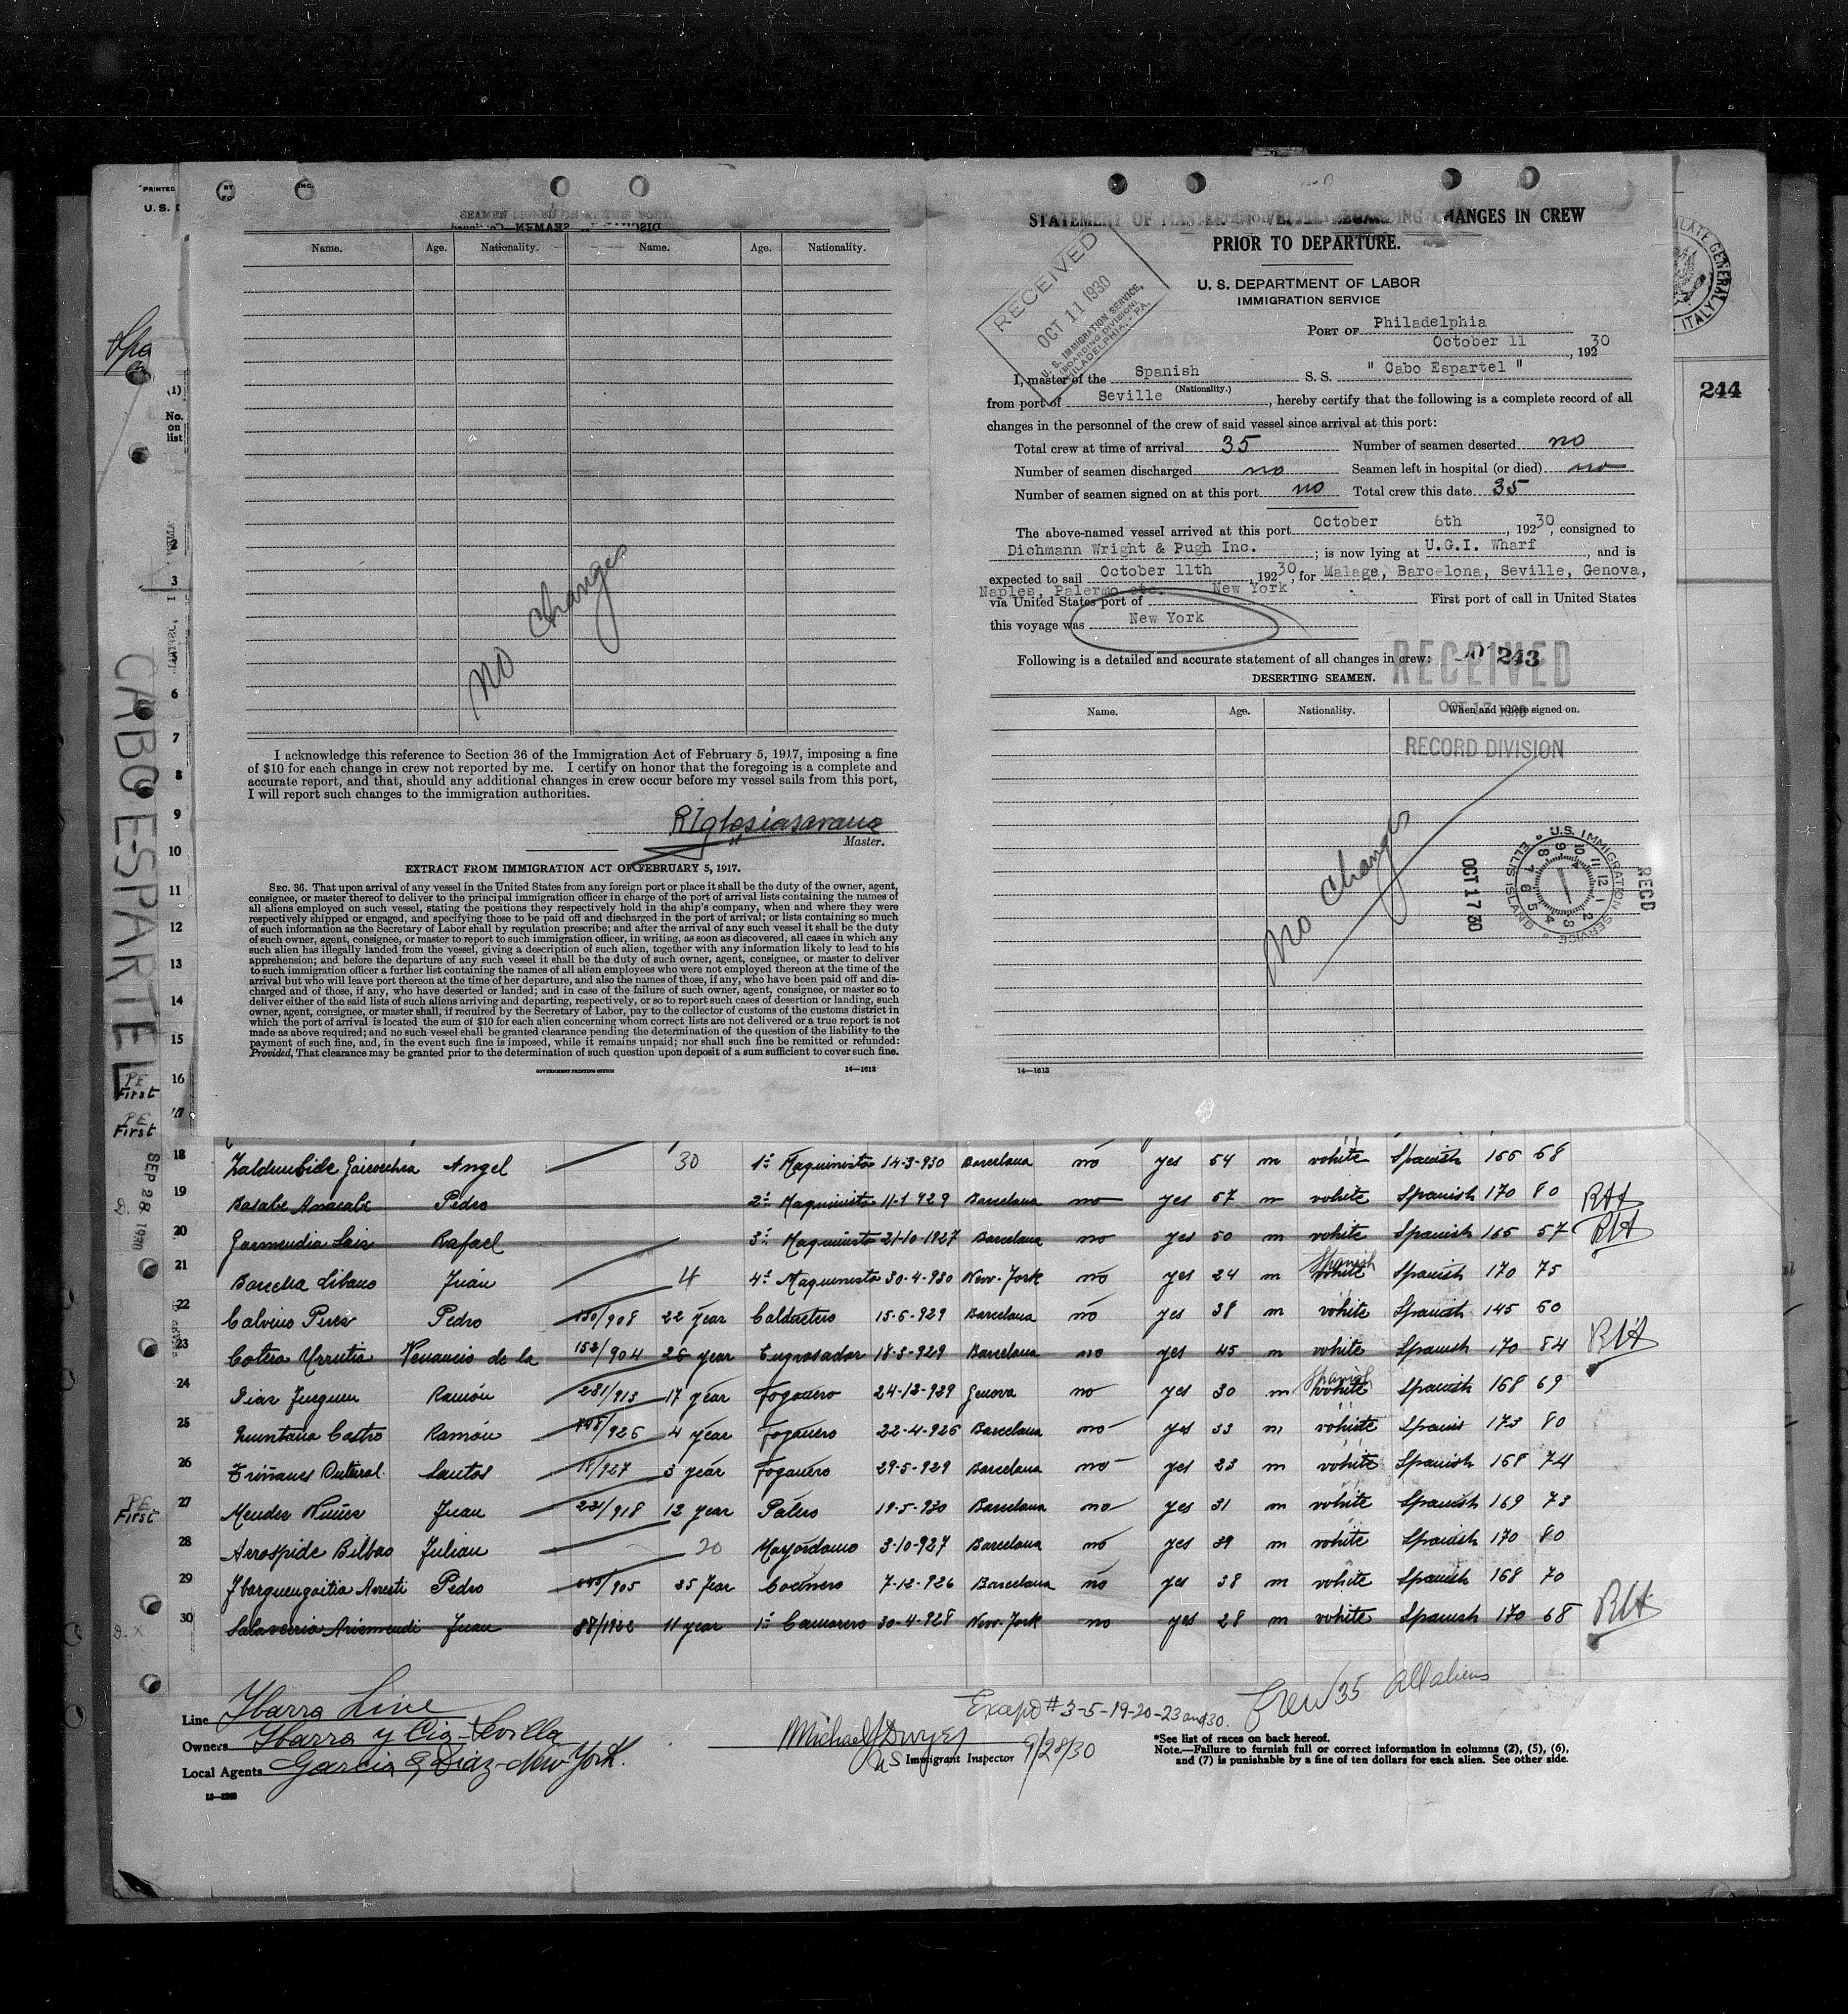 PRINTED
U. S.
BY
INC.
SEAMEN SIGNED ON AT THIS PORT.
Name. Age. Nationality. Name. Age. Nationality.
no changes
I acknowledge this reference to Section 36 of the Immigration Act of February 5, 1917, imposing a fine
of $10 for each change in crew not reported by me. I certify on honor that the foregoing is a complete and
accurate report, and that, should any additional changes in crew occur before my vessel sails from this port,
I will report such changes to the immigration authorities.
Master.
EXTRACT FROM IMMIGRATION ACT OF FEBRUARY 5, 1917.
SEC. 36. That upon arrival of any vessel in the United States from any foreign port or place it shall be the duty of the owner, agent,
consignee, or master thereof to deliver to the principal immigration officer in charge of the port of arrival lists containing the names of
all aliens employed on such vessel, stating the positions they respectively hold in the ship's company, when and where they were
respectively shipped or engaged, and specifying those to be paid off and discharged in the port of arrival; or lists containing so much
of such information as the Secretary of Labor shall by regulation prescribe; and after the arrival of any such vessel it shall be the duty
of such owner, agent, consignee, or master to report to such immigration officer, in writing, as soon as discovered, all cases in which any
such alien has illegally landed from the vessel, giving a description of such alien, together with any information likely to lead to his
apprehension; and before the departure of any such vessel it shall be the duty of such owner, agent, consignee, or master to deliver
to such immigration officer a further list containing the names of all alien employees who were not employed thereon at the time of the
arrival but who will leave port thereon at the time of her departure, and also the names of those, if any, who have been paid off and dis-
charged and of those, if any, who have deserted or landed; and in case of the failure of such owner, agent, consignee, or master so to
deliver either of the said lists of such aliens arriving and departing, respectively, or so to report such cases of desertion or landing, such
owner, agent, consignee, or master shall, if required by the Secretary of Labor, pay to the collector of customs of the customs district in
which the port of arrival is located the sum of $10 for each alien concerning whom correct lists are not delivered or a true report is not
made as above required; and no such vessel shall be granted clearance pending the determination of the question of the liability to the
payment of such fine, and, in the event such fine is imposed, while it remains unpaid; nor shall such fine be remitted or refunded:
Provided, That clearance may be granted prior to the determination of such question upon deposit of a sum sufficient to cover such fine.
GOVERNMENT PRINTING OFFICE 14—1613
STATEMENT OF MASTER OF VESSEL REGARDING CHANGES IN CREW
PRIOR TO DEPARTURE.
U. S. DEPARTMENT OF LABOR
IMMIGRATION SERVICE
RECEIVED
OCT 11 1930
U. S. IMMIGRATION SERVICE,
(BOARDING DIVISION)
PHILADELPHIA, - PA.
PORT OF Philadelphia
October 11, 192 30
I, master of the Spanish S. S. " Cabo Espartel "
(Nationality.)
from port of Seville, hereby certify that the following is a complete record of all
changes in the personnel of the crew of said vessel since arrival at this port:
Total crew at time of arrival 35 Number of seamen deserted no
Number of seamen discharged no Seamen left in hospital (or died) no
Number of seamen signed on at this port no Total crew this date 35
The above-named vessel arrived at this port October 6th, 192 30, consigned to
Dichmann Wright & Pugh Inc.; is now lying at U.G.I. Wharf, and is
expected to sail October 11th, 192 30; for Malage, Barcelona, Seville, Genova,
Naples, Palermo etc. New York
via United States port of First port of call in United States
this voyage was New York
Following is a detailed and accurate statement of all changes in crew:
243
RECEIVED
DESERTING SEAMEN.
OCT 17 1930
Name. Age. Nationality. When and where signed on.
RECORD DIVISION
no changes
OCT 17 30
U.S. IMMIGRATION SERVICE ELLIS ISLAND
REC'D
14—1613
CONSULATE GENERAL
ITALY
244
(1)
No.
on
list
CABO ESPARTEL
2
3
5
6
7
8
9
10
11
12
13
14
15
PE First 16
PE First 17
SEP 28 1930
18 Angel 30 1º Maquinista 14-3-930 Barcelona no yes 54 m white Spanish 165 68
19 Pedro 2º Maquinista 11-1-929 Barcelona no yes 57 m white Spanish 170 80
20 Rafael 3º Maquinista 21-10-1927 Barcelona no yes 50 m white Spanish 165 57
21 Juán 4 4º Maquinista 30-4-930 New-York no yes 24 m white Spanish Spanish 170 75
22 Calvino Pedro 22 year 15-6-929 Barcelona no yes 38 m white Spanish 145 60
23 Cotera Urrutia Venancio de la 152/904 26 year Engrasador 18-3-929 Barcelona no yes 45 m white Spanish 170 84
24 Ramón 281/913 17 year Fogonero 24-12-929 Genova no yes 30 m white Spanish Spanish 168 69
25 Quintana Castro Ramón 4 year Fogonero 22-4-926 Barcelona no yes 33 m white Spanis 173 80
26 Santos 3 year Fogonero 29-5-929 Barcelona no yes 23 m white Spanish 168 74
PE First 27 Mendez Juan 221/918 12 year Palero 19-5-930 Barcelona no yes 31 m white Spanish 169 73
28 Arrospide Bilbao Julian 20 Mayordomo 3-10-927 Barcelona no yes 39 m white Spanish 170 80
29 Pedro 25 year Cocinero 7-12-926 Barcelona no yes 38 m white Spanish 168 70
30 Salaverria Arismendi Juan 88/1922 11 year 1º Camarero 30-4-928 New-York no yes 28 m white Spanish 170 68
Line Ybarra Line
Owners Ybarra y Cia - Sevilla
Local Agents Garcia & Diaz - New York.
Except # 3-5-19-20-23 and 30. Crew 35 All aliens
Michael J Dwyer 9/28/30
US Immigrant Inspector
*See list of races on back hereof.
Note.—Failure to furnish full or correct information in columns (2), (5), (6),
and (7) is punishable by a fine of ten dollars for each alien. See other side.